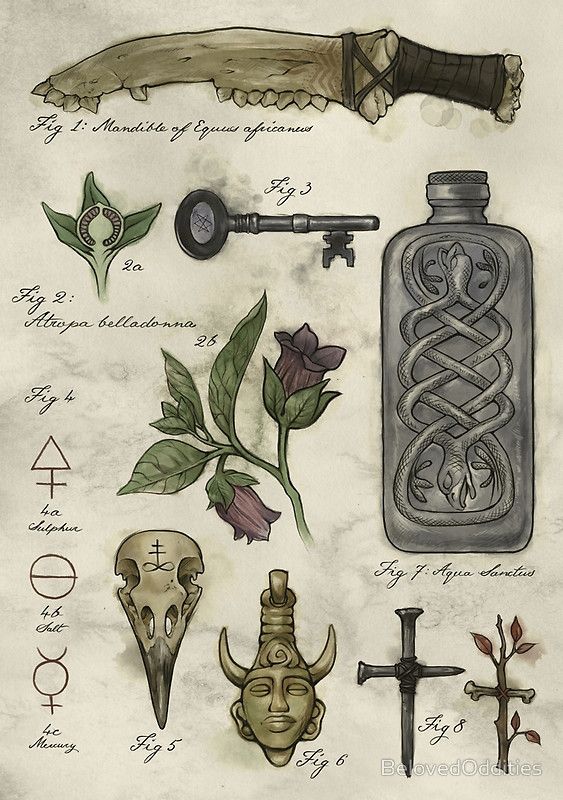 Fig 1: Mandible of Equus africanus
Fig 3
2a
Fig 2:
Atropa belladonna
2b
Fig 4
4a
Sulphur
4b
Salt
4c
Mercury
Fig 7: Aqua Sanctus
Fig 5
Fig 6
Fig 8
BelovedOddities